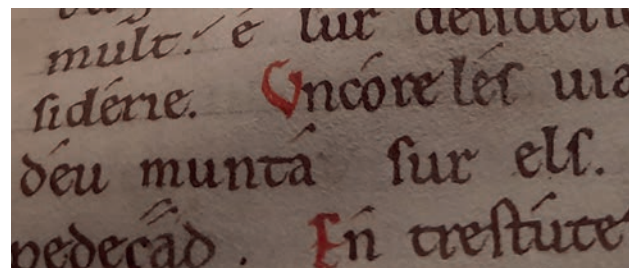 mult. é lur desiderie
ſidérie. Uncóre léſ uia
déu muntá ſur elſ.
pedeçád. En treſtúte